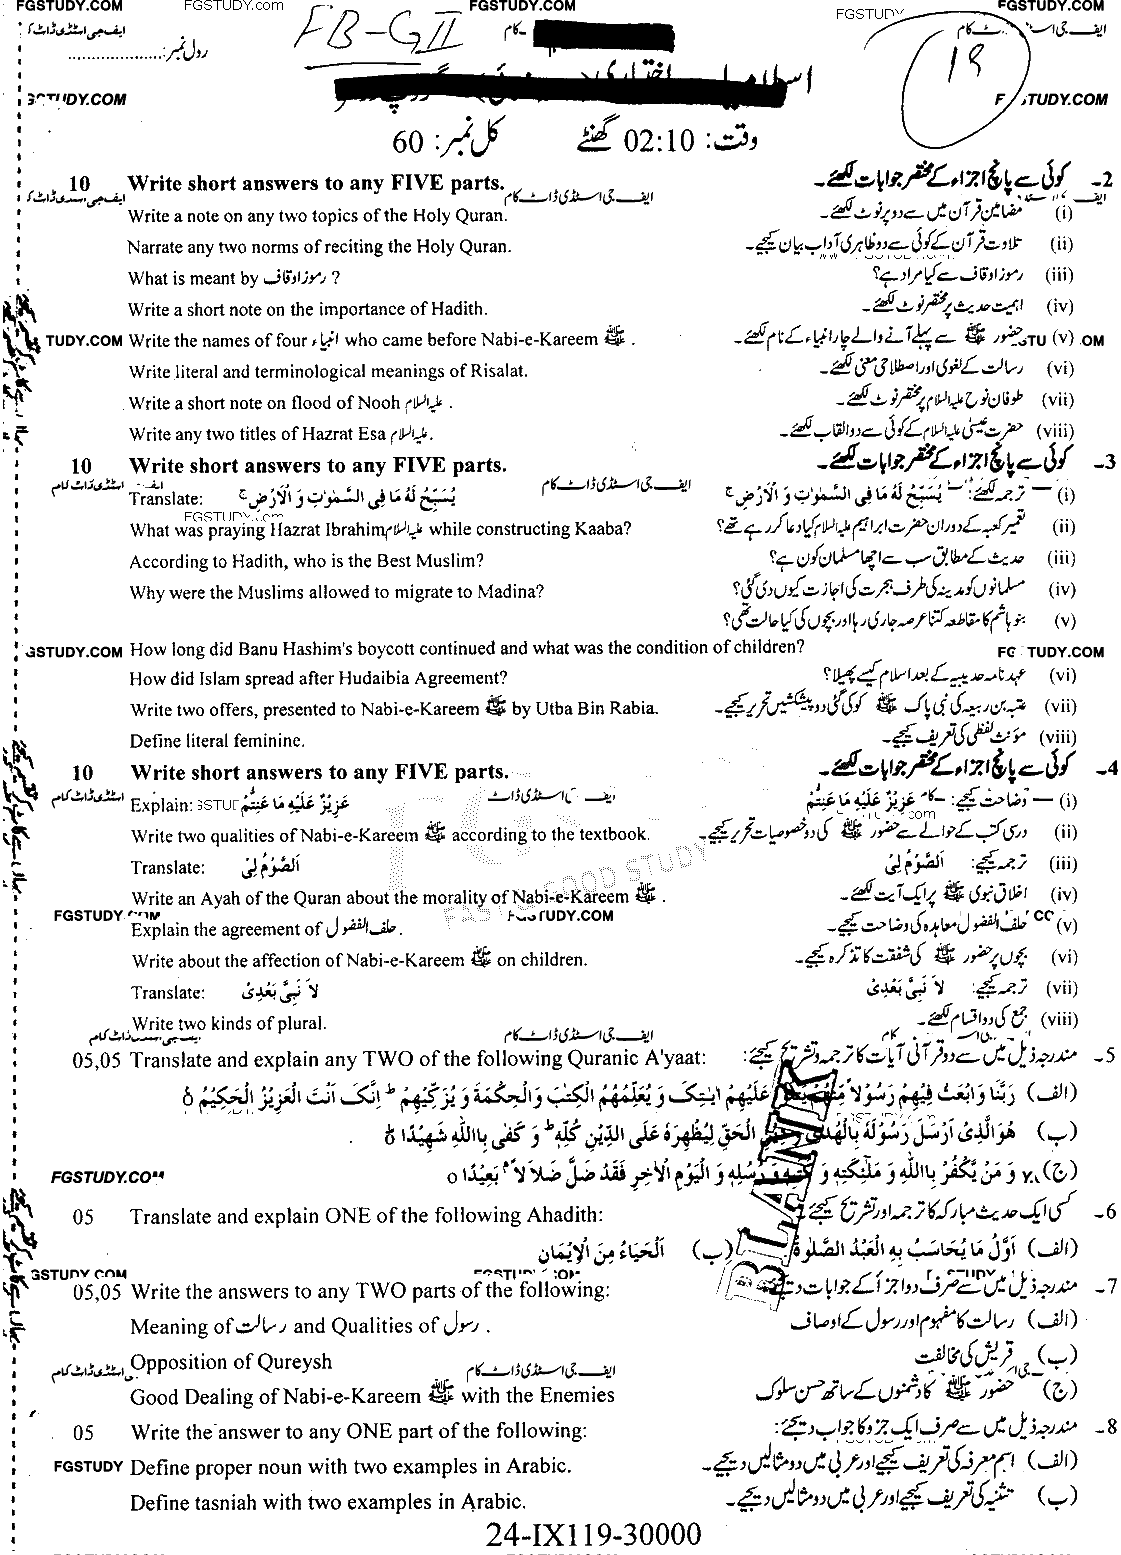 FGSTUDY.COM FGSTUDY.COM FGSTUDY FGSTUDY.COM
ایف جی اسٹڈی ڈاٹ کام FB-GII کام
رول نمبر: .....................
19
وقت: 02:10 گھنٹے کل نمبر: 60
2- کوئی سے پانچ اجزاء کے مختصر جوابات لکھئے۔ Write short answers to any FIVE parts. 10
(i) مضامین قرآن میں سے دو پر نوٹ لکھئے۔ Write a note on any two topics of the Holy Quran.
(ii) تلاوت قرآن کے کوئی سے دو ظاہری آداب بیان کیجیے۔ Narrate any two norms of reciting the Holy Quran.
(iii) رموز اوقاف سے کیا مراد ہے؟ What is meant by رموز اوقاف ?
(iv) اہمیت حدیث پر مختصر نوٹ لکھئے۔ Write a short note on the importance of Hadith.
(v) حضور ﷺ سے پہلے آنے والے چار انبیاء کے نام لکھئے۔ Write the names of four انبیاء who came before Nabi-e-Kareem ﷺ .
(vi) رسالت کے لغوی اور اصطلاحی معنی لکھئے۔ Write literal and terminological meanings of Risalat.
(vii) طوفان نوح علیہ السلام پر مختصر نوٹ لکھئے۔ Write a short note on flood of Nooh علیہ السلام .
(viii) حضرت عیسیٰ علیہ السلام کے کوئی سے دو القاب لکھئے۔ Write any two titles of Hazrat Esa علیہ السلام.
3- کوئی سے پانچ اجزاء کے مختصر جوابات لکھئے۔ Write short answers to any FIVE parts. 10
(i) ترجمہ لکھئے: يُسَبِّحُ لَهُ مَا فِي السَّمٰوٰتِ وَ الْاَرْضِ ج Translate: يُسَبِّحُ لَهُ مَا فِي السَّمٰوٰتِ وَ الْاَرْضِ ج
(ii) تعمیر کعبہ کے دوران حضرت ابراہیم علیہ السلام کیا دعا کر رہے تھے؟ What was praying Hazrat Ibrahim علیہ السلام while constructing Kaaba?
(iii) حدیث کے مطابق سب سے اچھا مسلمان کون ہے؟ According to Hadith, who is the Best Muslim?
(iv) مسلمانوں کو مدینہ کی طرف ہجرت کی اجازت کیوں دی گئی؟ Why were the Muslims allowed to migrate to Madina?
(v) بنو ہاشم کا مقاطعہ کتنا عرصہ جاری رہا اور بچوں کی کیا حالت تھی؟
How long did Banu Hashim's boycott continued and what was the condition of children?
(vi) عہد نامہ حدیبیہ کے بعد اسلام کیسے پھیلا؟ How did Islam spread after Hudaibia Agreement?
(vii) عتبہ بن ربیعہ کی نبی پاک ﷺ کو کی گئی دو پیشکشیں تحریر کیجیے۔ Write two offers, presented to Nabi-e-Kareem ﷺ by Utba Bin Rabia.
(viii) مؤنث لفظی کی تعریف کیجیے۔ Define literal feminine.
4- کوئی سے پانچ اجزاء کے مختصر جوابات لکھئے۔ Write short answers to any FIVE parts. 10
(i) وضاحت کیجیے: عَزِيْزٌ عَلَيْهِ مَا عَنِتُّمْ Explain: عَزِيْزٌ عَلَيْهِ مَا عَنِتُّمْ
(ii) درسی کتب کے حوالے سے حضور ﷺ کی دو خصوصیات تحریر کیجیے۔ Write two qualities of Nabi-e-Kareem ﷺ according to the textbook.
(iii) ترجمہ کیجیے: اَلصَّوْمُ لِيْ Translate: اَلصَّوْمُ لِيْ
(iv) اخلاق نبوی ﷺ پر ایک آیت لکھئے۔ Write an Ayah of the Quran about the morality of Nabi-e-Kareem ﷺ .
FGSTUDY.COM FGSTUDY.COM
(v) حلف الفضول معاہدہ کی وضاحت کیجیے۔ Explain the agreement of حلف الفضول .
(vi) بچوں پر حضور ﷺ کی شفقت کا تذکرہ کیجیے۔ Write about the affection of Nabi-e-Kareem ﷺ on children.
(vii) ترجمہ کیجیے: لَا نَبِيَّ بَعْدِيْ Translate: لَا نَبِيَّ بَعْدِيْ
(viii) جمع کی دو اقسام لکھئے۔ Write two kinds of plural.
5- مندرجہ ذیل میں سے دو قرآنی آیات کا ترجمہ و تشریح کیجیے: Translate and explain any TWO of the following Quranic A'yaat: 05,05
(الف) رَبَّنَا وَابْعَثْ فِيْهِمْ رَسُوْلًا مِّنْهُمْ عَلَيْهِمْ اٰيٰتِكَ وَ يُعَلِّمُهُمُ الْكِتٰبَ وَالْحِكْمَةَ وَ يُزَكِّيْهِمْ ط اِنَّكَ اَنْتَ الْعَزِيْزُ الْحَكِيْمُ ۝
(ب) هُوَ الَّذِيْ اَرْسَلَ رَسُوْلَهٗ بِالْهُدٰى الْحَقِّ لِيُظْهِرَهٗ عَلَى الدِّيْنِ كُلِّهٖ ط وَ كَفٰى بِاللّٰهِ شَهِيْدًا ۝
(ج) وَ مَنْ يَّكْفُرْ بِاللّٰهِ وَ مَلٰٓئِكَتِهٖ وَ كُتُبِهٖ وَ رُسُلِهٖ وَ الْيَوْمِ الْاٰخِرِ فَقَدْ ضَلَّ ضَلٰلًا بَعِيْدًا ۝
FGSTUDY.COM
BLANK
6- کسی ایک حدیث مبارکہ کا ترجمہ اور تشریح کیجیے: Translate and explain ONE of the following Ahadith: 05
(الف) اَوَّلُ مَا يُحَاسَبُ بِهِ الْعَبْدُ الصَّلٰوةُ (ب) اَلْحَيَاءُ مِنَ الْاِيْمَانِ
7- مندرجہ ذیل میں سے صرف دو اجزا کے جوابات دیجئے: Write the answers to any TWO parts of the following: 05,05
(الف) رسالت کا مفہوم اور رسول کے اوصاف Meaning of رسالت and Qualities of رسول .
(ب) قریش کی مخالفت Opposition of Qureysh
(ج) حضور ﷺ کا دشمنوں کے ساتھ حسن سلوک Good Dealing of Nabi-e-Kareem ﷺ with the Enemies
8- مندرجہ ذیل میں سے صرف ایک جزو کا جواب دیجئے: Write the answer to any ONE part of the following: 05
(الف) اسم معرفہ کی تعریف کیجیے اور عربی میں دو مثالیں دیجیے۔ Define proper noun with two examples in Arabic.
(ب) تثنیہ کی تعریف کیجیے اور عربی میں دو مثالیں دیجیے۔ Define tasniah with two examples in Arabic.
24-IX119-30000